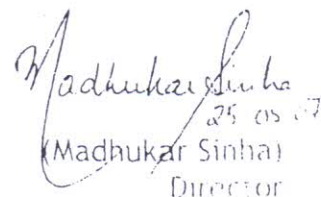 Madhukar Sinha
25 05 07
(Madhukar Sinha)
Director